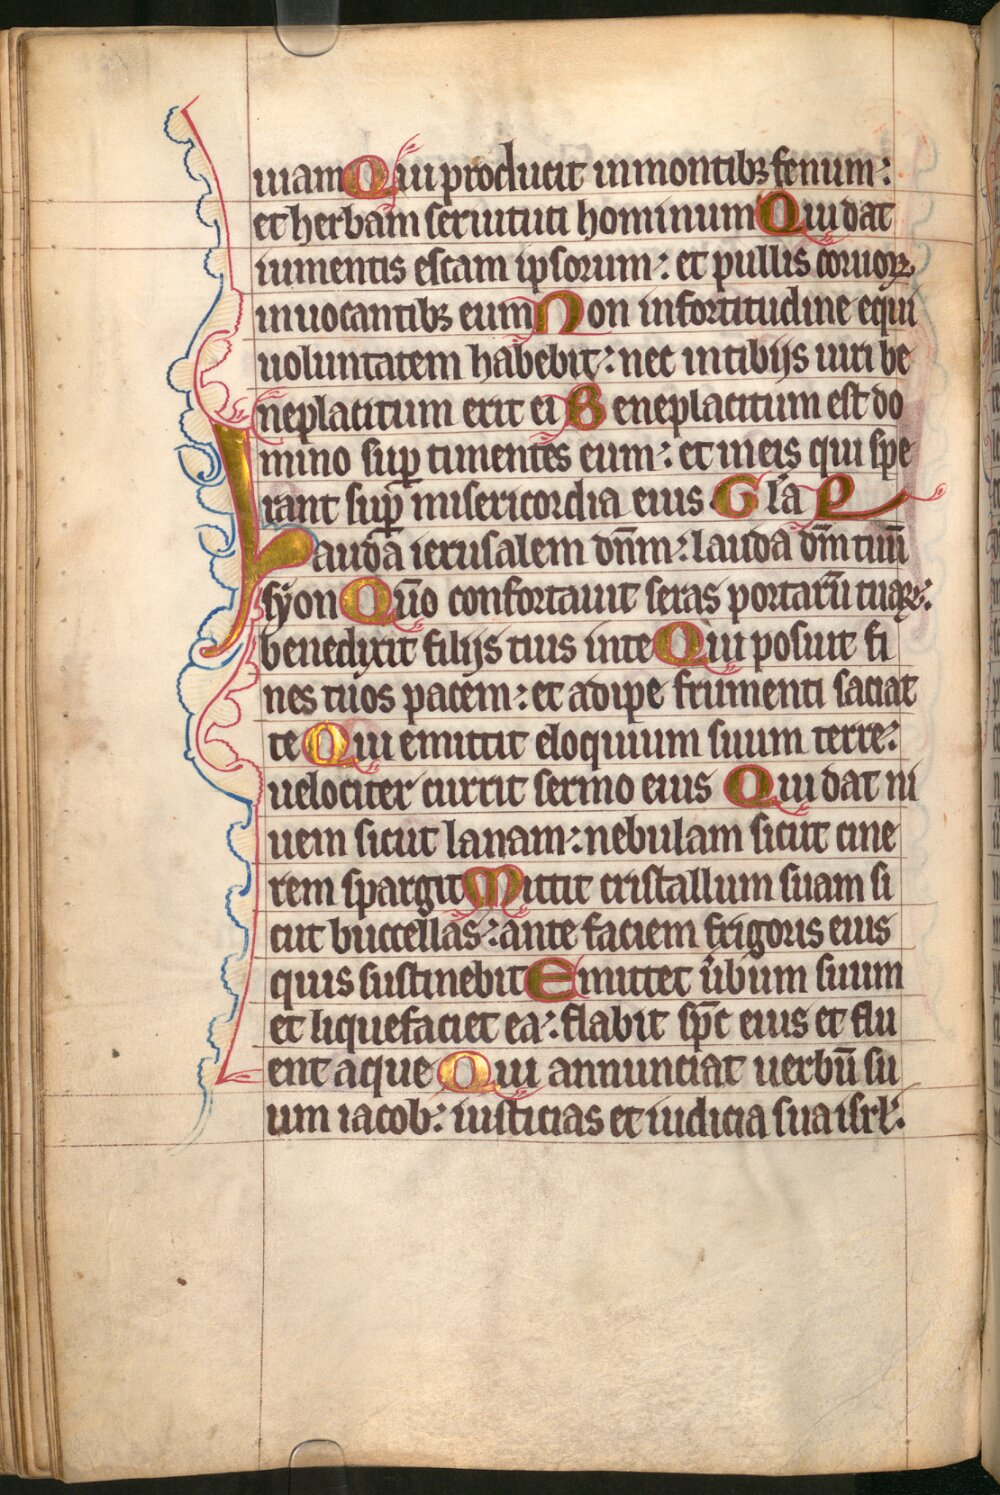 uiam Qui producit in montib; fenum:
et herbam seruituti hominum Qui dat
iumentis escam ipsorum: et pullis coruoꝝ
inuocantib; eum Non in fortitudine equi
uoluntatem habebit: nec in tibijs uiri be
neplacitum erit ei Beneplacitum est do
mino suꝑ timentes eum: et in eis qui spe
rant suꝑ misericordia eius Gl̄a P
Lauda ierusalem dn̄m: lauda dm̄ tuū
syon Qn̄o confortauit seras portarū tuaꝝ:
benedixit filijs tuis in te Qui posuit fi
nes tuos pacem: et adipe frumenti saciat
te Qui emittit eloquium suum terre:
uelociter currit sermo eius Qui dat ni
uem sicut lanam: nebulam sicut cine
rem spargit Mittit cristallum suam si
cut buccellas: ante faciem frigoris eius
quis sustinebit Emittet ūbum suum
et liquefaciet ea: flabit sp̄c eius et flu
ent aque Qui annunciat uerbū su
um iacob: iusticias et iudicia sua isrl̄.